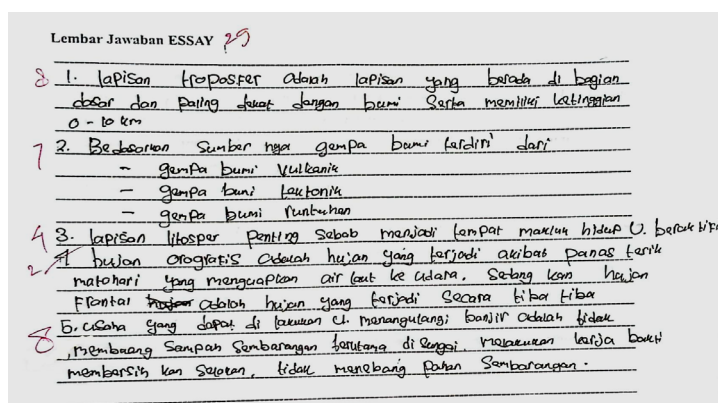 Lembar Jawaban ESSAY 29
8 1. lapisan troposfer adalah lapisan yang berada di bagian
dasar dan paling dekat dengan bumi serta memiliki ketinggian
0 - 10 km
7 2. Berdasarkan Sumber nya gempa bumi terdiri dari
- gempa bumi Vulkanik
- gempa bumi tektonik
- gempa bumi runtuhan
4 3. lapisan litosper penting sebab menjadi tempat makluk hidup U. berak
2 4 hujan orografis adalah hujan yang terjadi akibat panas terik
matahari yang menguapkan air laut ke udara. Sedang kan hujan
Frontal adalah hujan yang terjadi secara tiba tiba
8 5. usaha yang dapat di lakukan U. menangulangi banjir adalah tidak
, membuang Sampah Sembarangan terutama di sungai, melakukan kerja bakti
membersih kan Selokan, tidak menebang pohon Sembarangan.